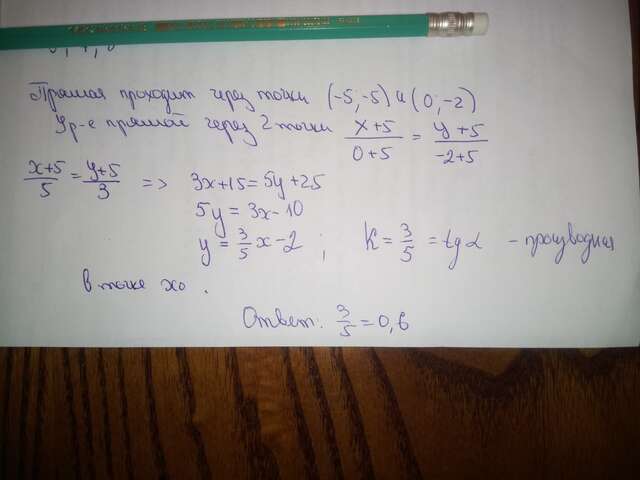 Прямая проходит через точки (-5;-5) и (0;-2)
Ур-е прямой через 2 точки (x+5)/(0+5) = (y+5)/(-2+5)
(x+5)/5 = (y+5)/3 => 3x+15=5y+25
5y = 3x-10
y = 3/5 x-2 ; K = 3/5 = tg α - производная
в точке x₀.
Ответ: 3/5 = 0,6